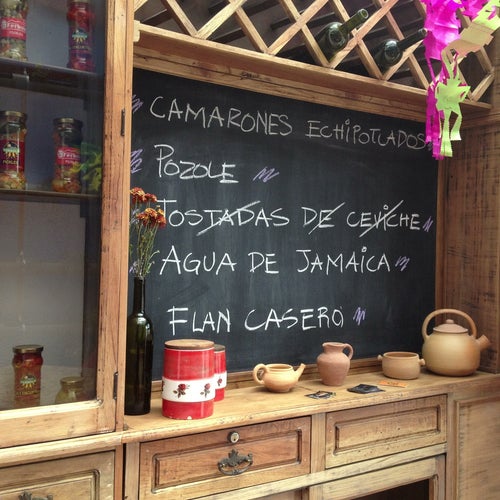 CAMARONES ECHIPOTLADOS
POZOLE
TOSTADAS DE CEVICHE
AGUA DE JAMAICA
FLAN CASERO